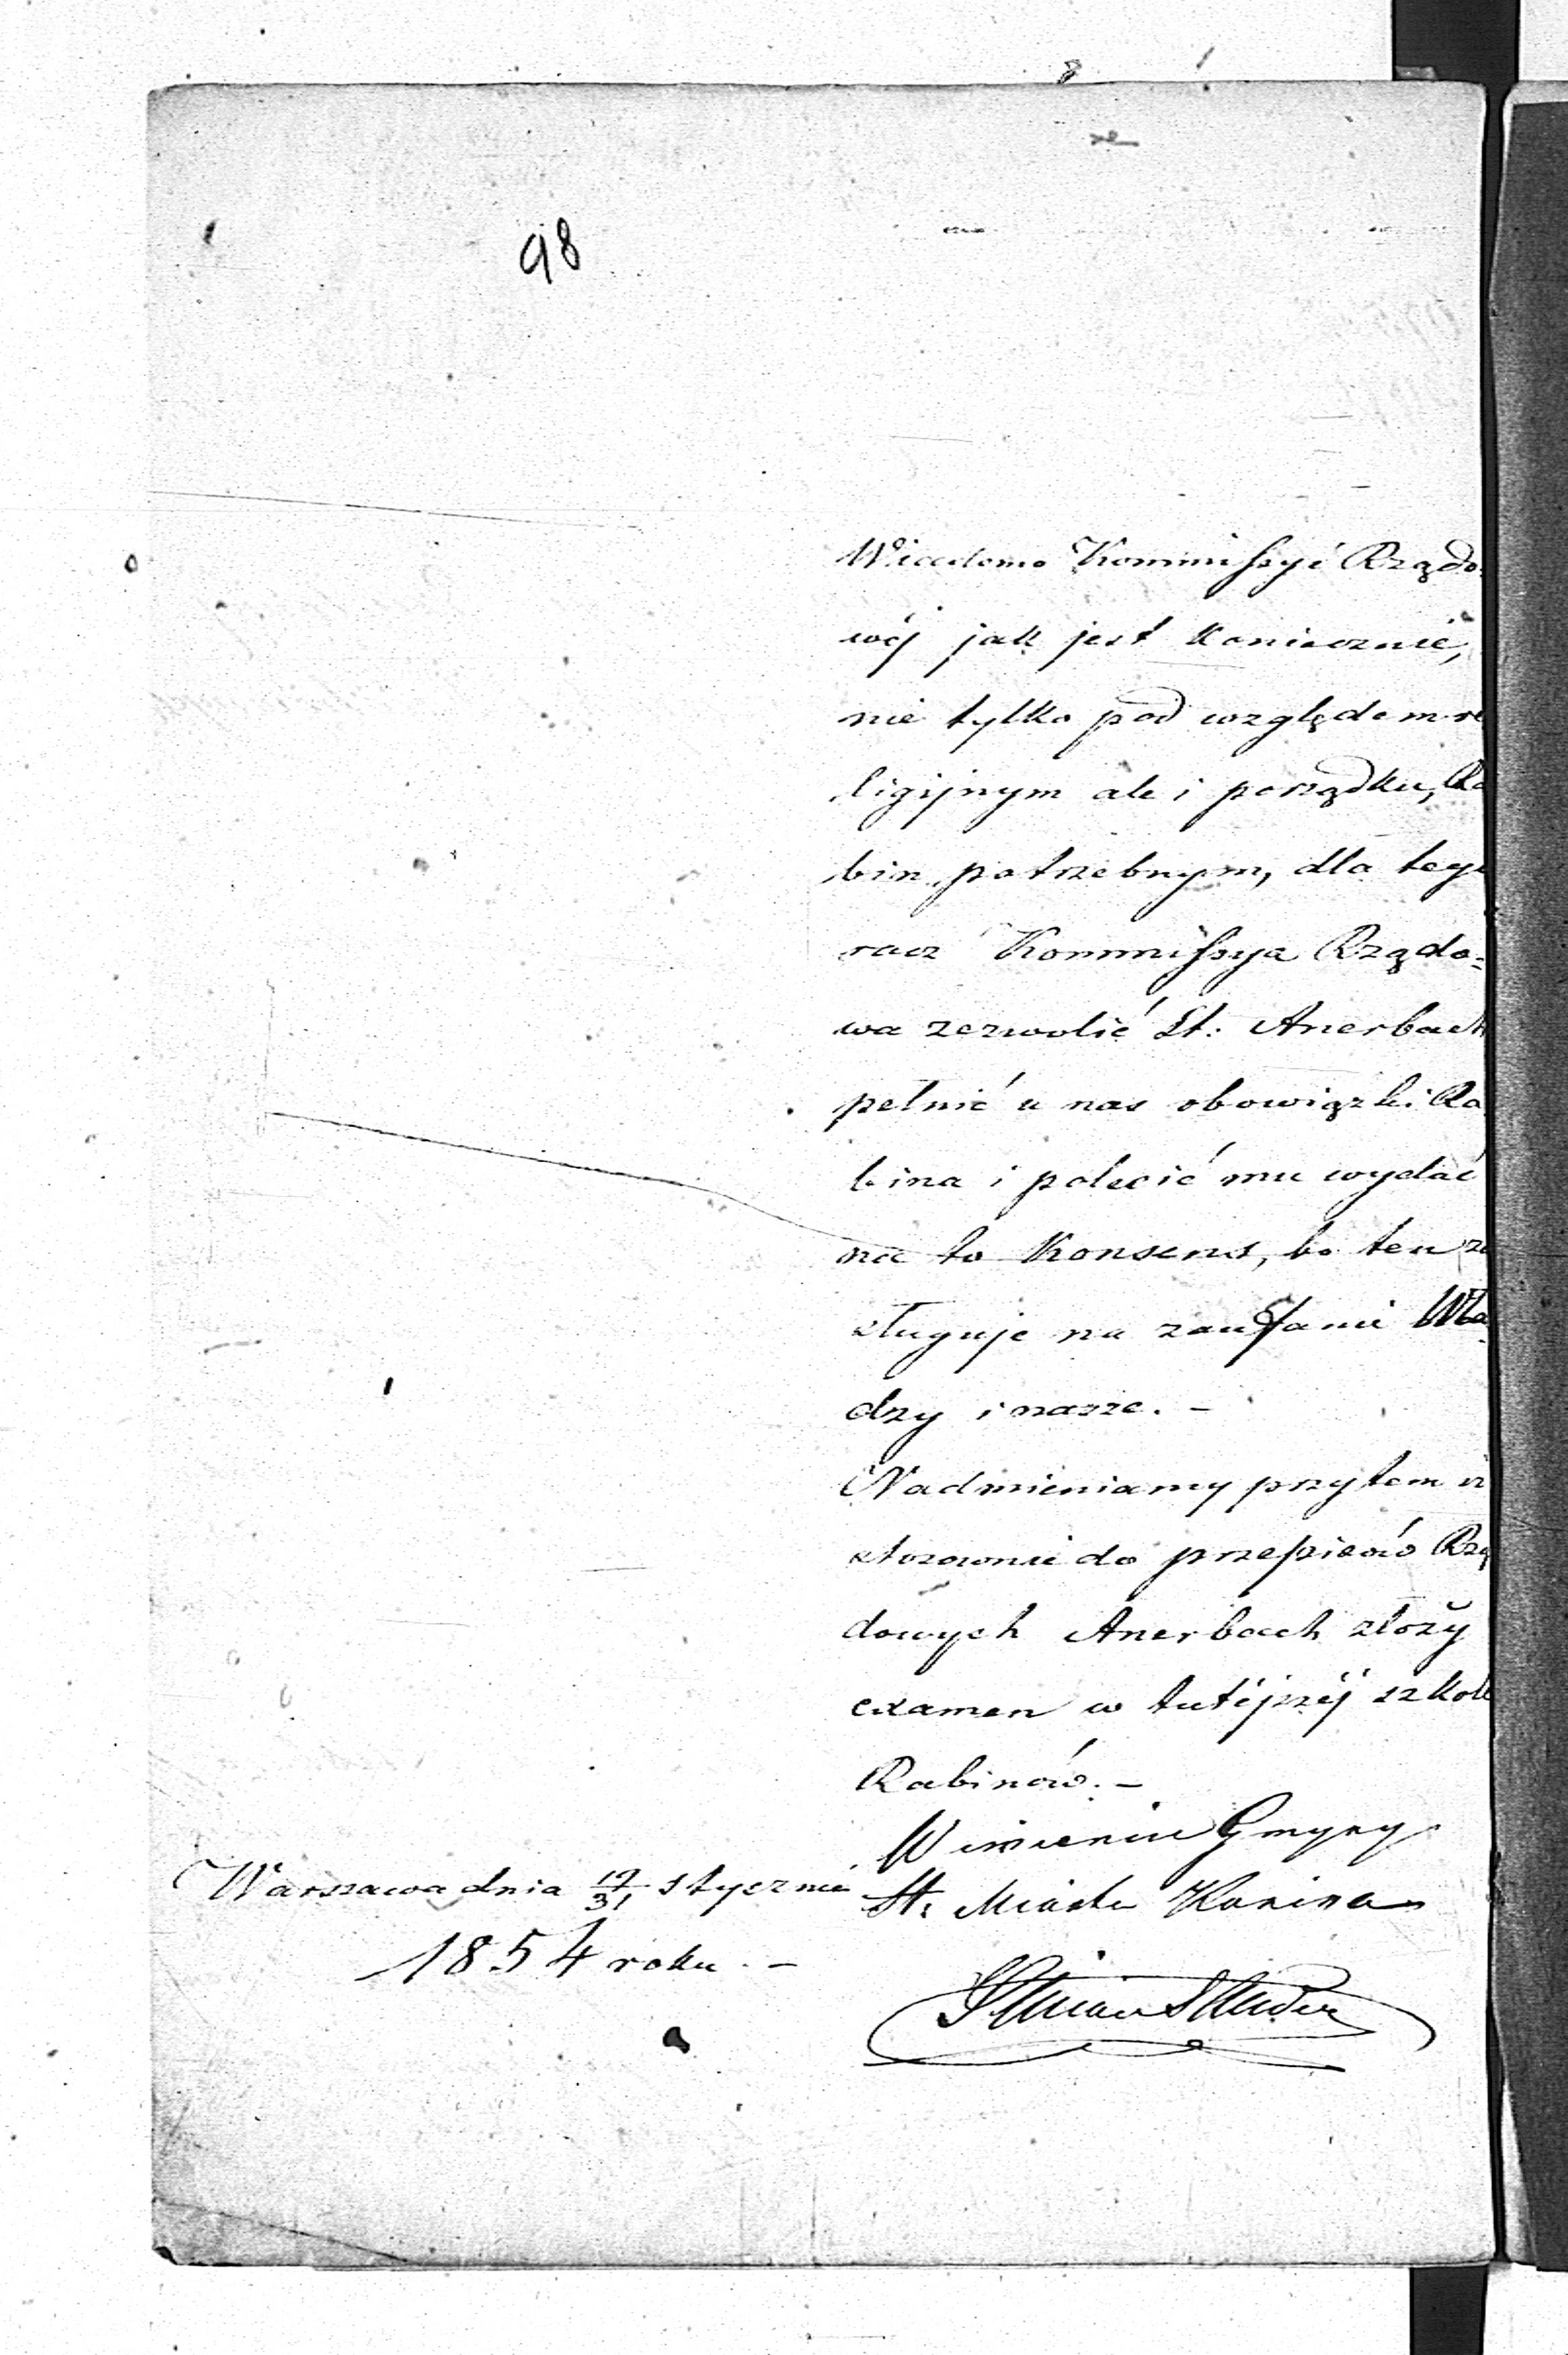 98
Wiadomo Kommissyi Rządo-
wéj jak jest koniecznie,
nie tylko pod względem re
ligijnym ale i porządku, Ra
bin potrzebnym, dla tego
racz Kommissya Rządo=
wa zezwolić St: Anerbach
pełnić u nas obowiązki Ra
bina i polecić mu wydać
na to Konsens, bo ten za
sługuje na zaufanie Wła
dzy i nasze. –
Nadmieniamy przytem iż
stosownie do przepisów Rzą
dowych Anerbach złoży
examen w tutéjszéj szkole
Rabinów. –
W imieniu Gminy
St: Miasta Konina
Warszawa dnia 19/31 stycznia
1854 roku. –